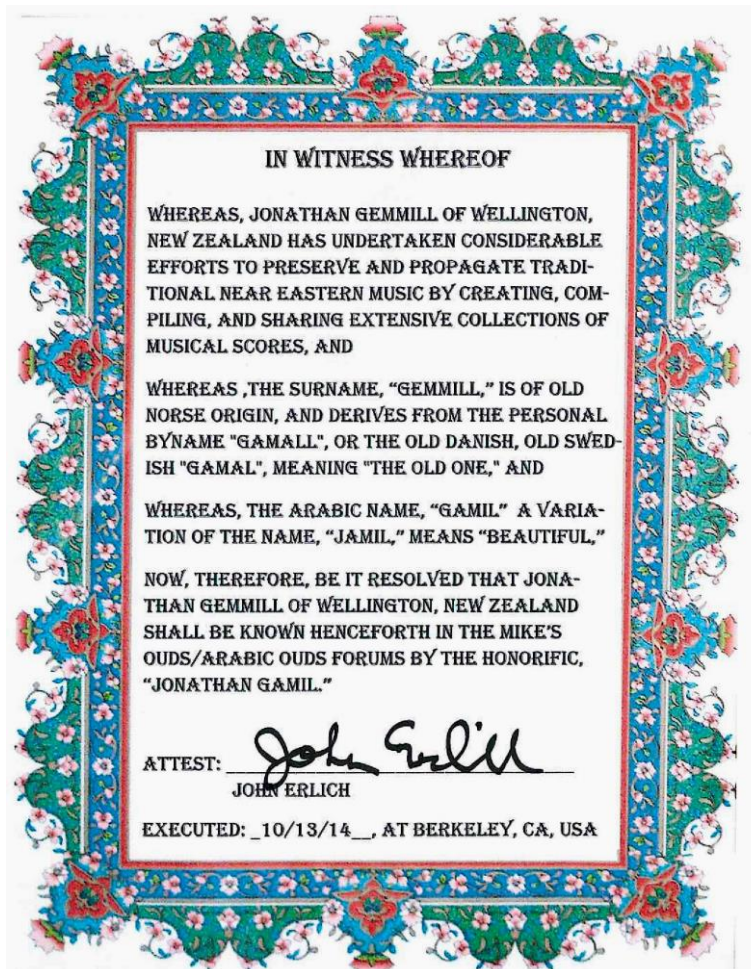 IN WITNESS WHEREOF
WHEREAS, JONATHAN GEMMILL OF WELLINGTON,
NEW ZEALAND HAS UNDERTAKEN CONSIDERABLE
EFFORTS TO PRESERVE AND PROPAGATE TRADI-
TIONAL NEAR EASTERN MUSIC BY CREATING, COM-
PILING, AND SHARING EXTENSIVE COLLECTIONS OF
MUSICAL SCORES, AND
WHEREAS ,THE SURNAME, “GEMMILL,” IS OF OLD
NORSE ORIGIN, AND DERIVES FROM THE PERSONAL
BYNAME "GAMALL", OR THE OLD DANISH, OLD SWED-
ISH "GAMAL", MEANING "THE OLD ONE," AND
WHEREAS, THE ARABIC NAME, “GAMIL” A VARIA-
TION OF THE NAME, “JAMIL,” MEANS “BEAUTIFUL,”
NOW, THEREFORE, BE IT RESOLVED THAT JONA-
THAN GEMMILL OF WELLINGTON, NEW ZEALAND
SHALL BE KNOWN HENCEFORTH IN THE MIKE’S
OUDS/ARABIC OUDS FORUMS BY THE HONORIFIC,
“JONATHAN GAMIL.”
ATTEST: John Erlich
JOHN ERLICH
EXECUTED: _10/13/14__, AT BERKELEY, CA, USA